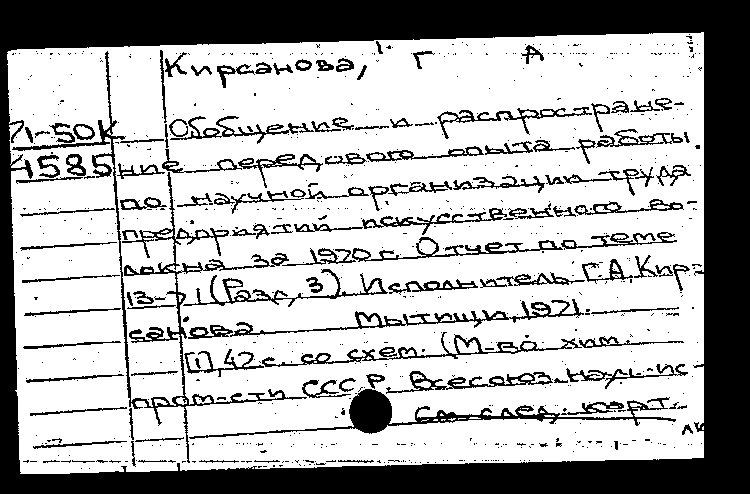 Кирсанова, Г А
71-50К Обобщение и распростране-
4585 ние передового опыта работы
по научной организации труда
предприятий искусственного во-
локна за 1970 г. Отчет по теме
13-71 (Разд. 3). Исполнитель Г.А. Кир-
санова. Мытищи, 1971.
[1], 42 с. со схем. (М-во хим.
пром-сти СССР. Всесоюз. науч.-ис-
См. след. карт.